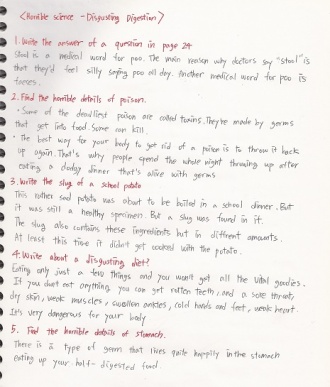 <Horrible science - Disgusting Digestion>
1. Write the answer of a question in page 24
Stool is a medical word for poo. The main reason why doctors say "stool" is
that they'd feel silly saying poo all day. Another medical word for poo is
faeces.
2. Find the horrible details of poison.
• Some of the deadliest poison are called toxins. They're made by germs
that get into food. Some can kill.
• The best way for your body to get rid of a poison is to throw it back
up again. That's why people spend the whole night throwing up after
eating a dodgy dinner that's alive with germs
3. Write the slug of a school potato
This rather sad potato was about to be boiled in a school dinner. But
it was still a healthy specimen. But a slug was found in it.
The slug also contains these ingredients but in different amounts.
At least this time it didn't get cooked with the potato.
4. Write about a disgusting diet?
Eating only just a few things and you won't get all the vital goodies.
If you don't eat anything, you can get rotten teeth, and a sore throat,
dry skin, weak muscles, swollen ankles, cold hands and feet, weak heart.
It's very dangerous for your body
5. Find the horrible details of stomach.
There is a type of germ that lives quite happily in the stomach
eating up your half-digested food.